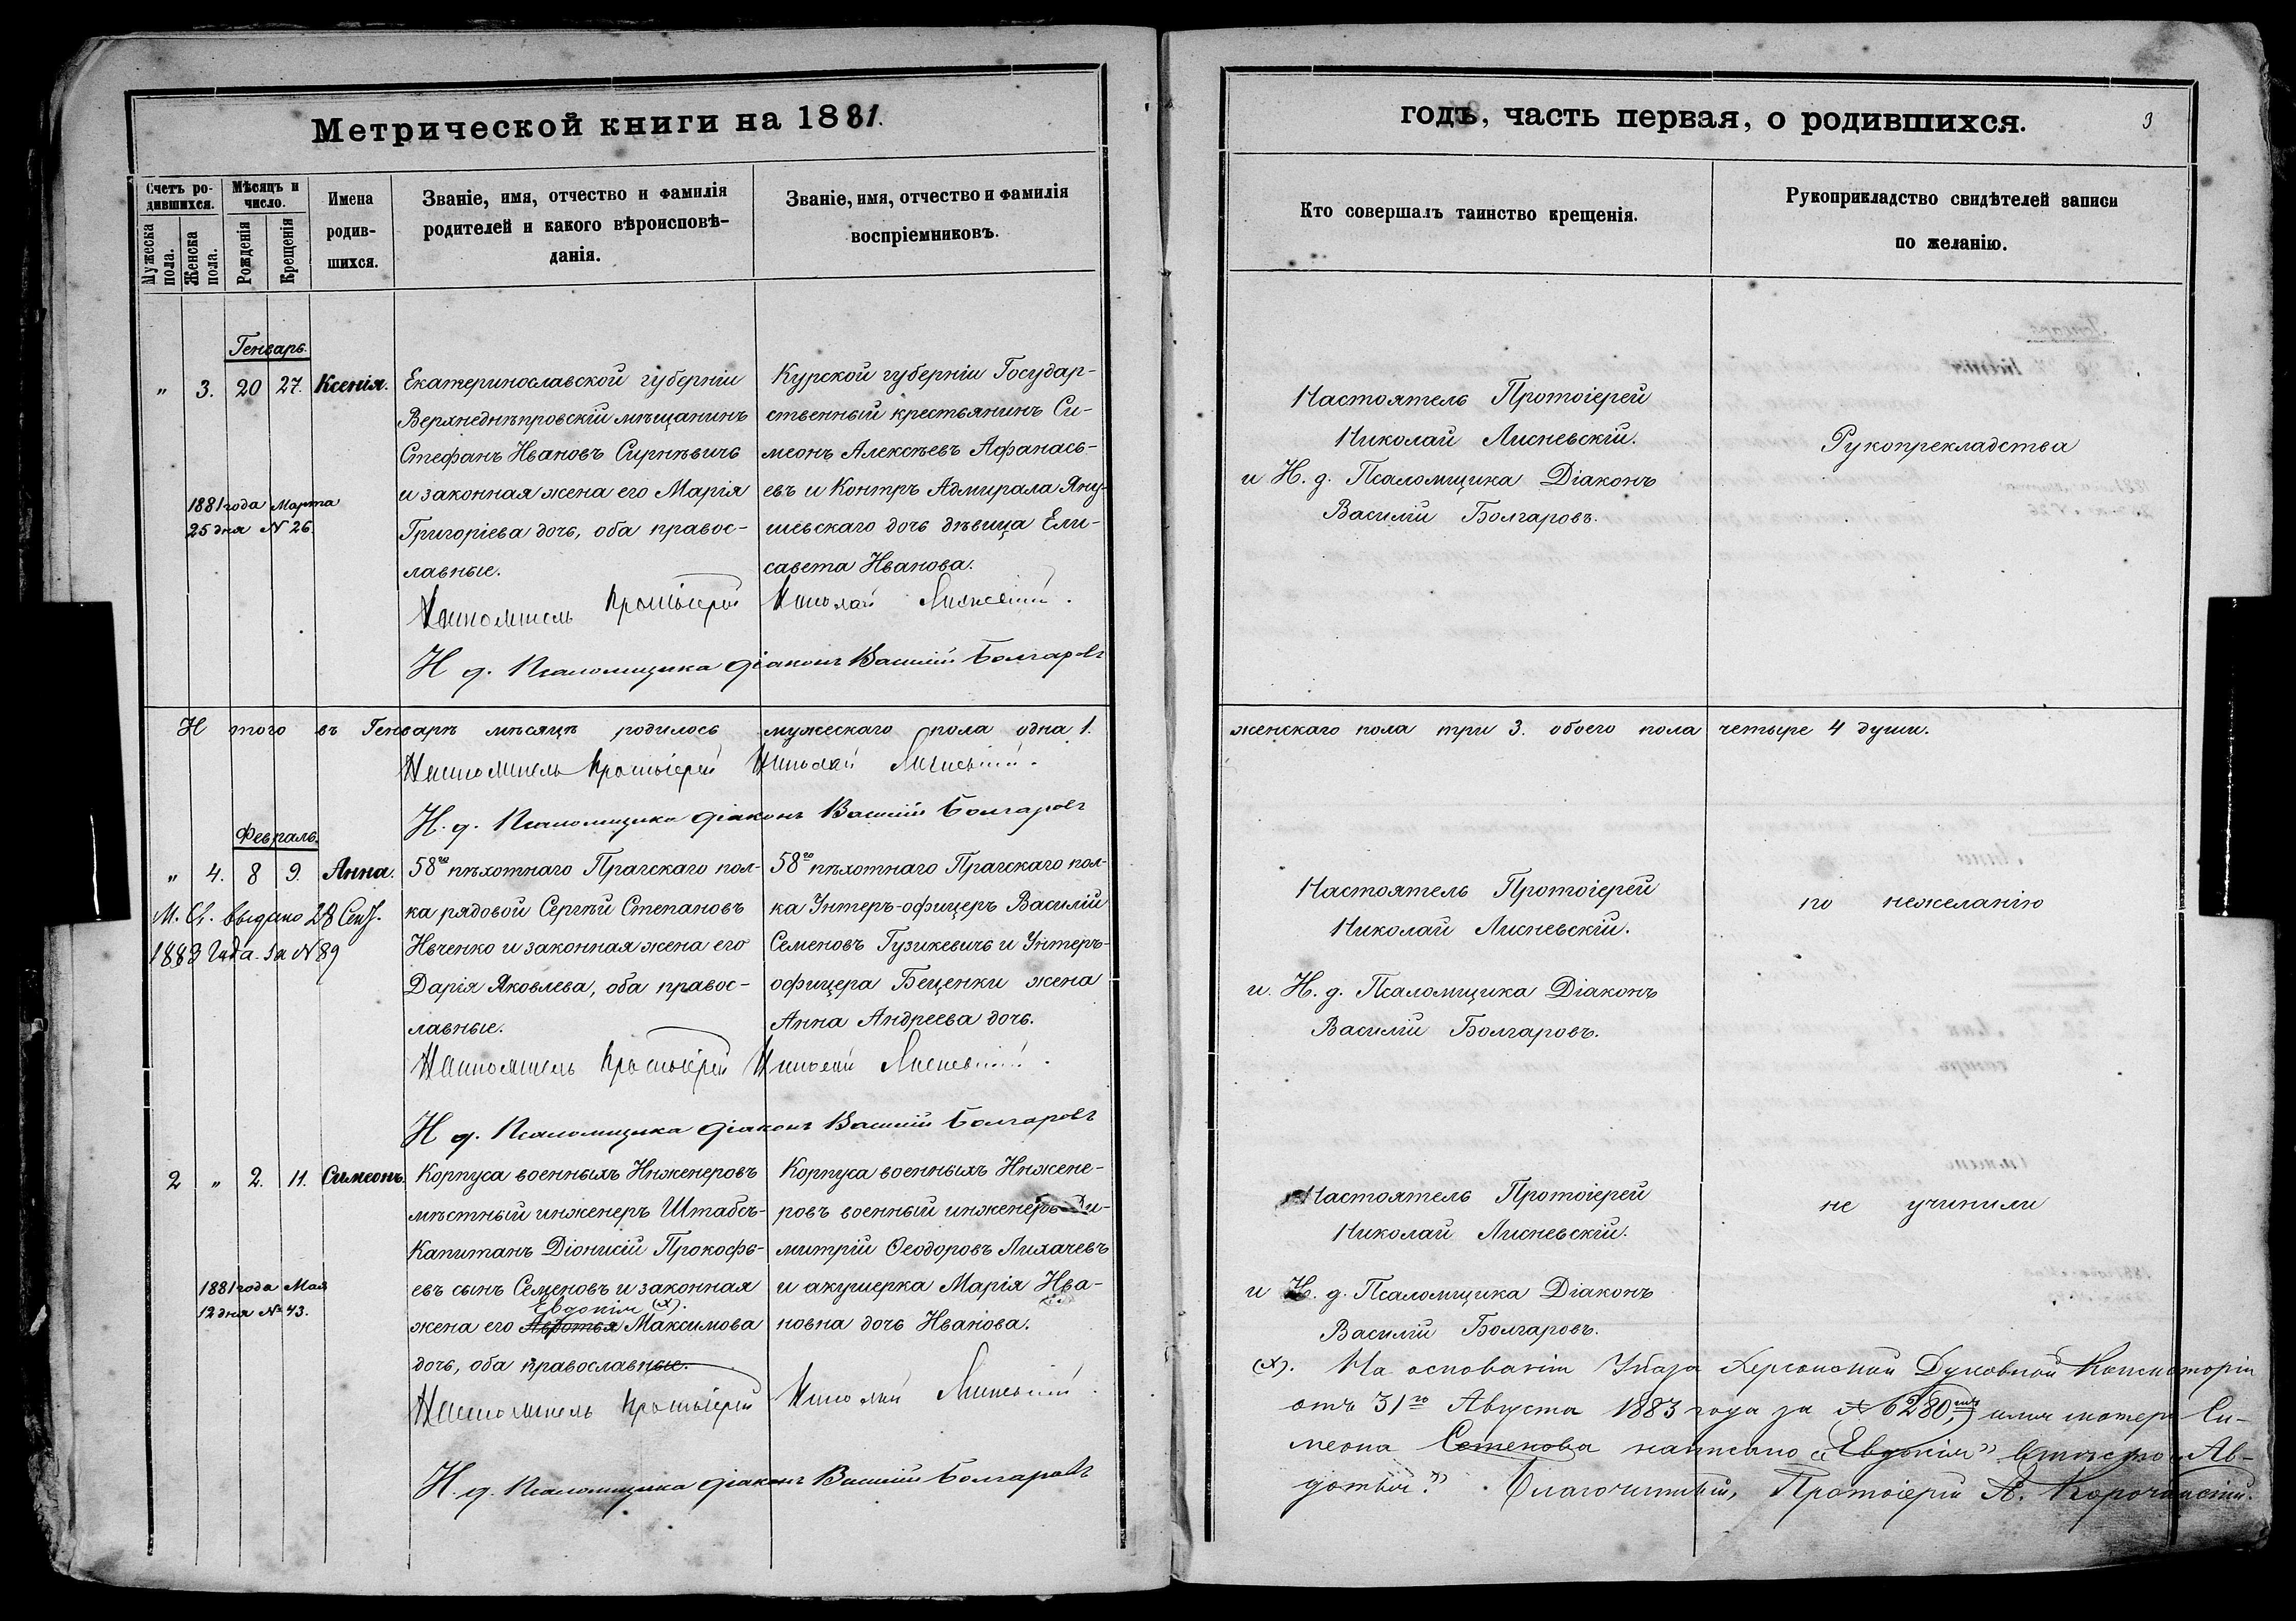 Метрической книги на 1881.
годъ, часть первая, о родившихся.
3
Счетъ ро-
дившихся.
Мужеска пола.
Женска пола.
Мѣсяцъ и
число.
Рожденія
Крещенія
Имена
родив-
шихся.
Званіе, имя, отчество и фамилія
родителей и какого вѣроисповѣ-
данія.
Званіе, имя, отчество и фамилія
воспріемниковъ.
Кто совершалъ таинство крещенія.
Рукоприкладство свидѣтелей записи
по желанію.
Генварь.
„ 3. 20 27. Ксенія.
1881 года Марта
25 дня N 26.
Екатеринославской губерніи
Верхнеднѣпровскій мѣщанинъ
Стефанъ Ивановъ Сирнѣвичь
и законная жена его Марія
Григоріева дочь, оба правос-
лавные.
Курской губерніи Государ-
ственный крестьянинъ Си-
меонъ Алексѣевъ Афанась-
евъ и Контръ Адмирала Яну-
шевскаго дочь дѣвица Ели-
савета Иванова.
Настоятель Протоіерей Николай Лисневскій.
И. д. Псаломщика діаконъ Василій Болгаровъ
Настоятель Протоіерей
Николай Лисневскій.
и И. д. Псаломщика Діаконъ
Василій Болгаровъ.
Рукопрекладства
И того въ Генварѣ мѣсяцѣ родилось мужескаго пола одна 1. женскаго пола три 3. обоего пола четыре 4 души.
Настоятель Протоіерей Николай Лисневскій.
И. д. Псаломщика діаконъ Василій Болгаровъ
Февраль.
„ 4. 8 9. Анна.
М. Св. выдано 28 Сент.
1883 года за N 89
58го пѣхотнаго Прагскаго пол-
ка рядовой Сергѣй Степановъ
Ивченко и законная жена его
Дарія Яковлева, оба правос-
лавные.
58го пѣхотнаго Прагскаго пол-
ка Унтеръ-офицеръ Василій
Семеновъ Гузикевичь и Унтеръ-
офицера Бещенки жена
Анна Андреева дочь.
Настоятель Протоіерей Николай Лисневскій.
И. д. Псаломщика діаконъ Василій Болгаровъ
Настоятель Протоіерей
Николай Лисневскій.
и. И. д. Псаломщика Діаконъ
Василій Болгаровъ.
по нежеланію
2 „ 2. 11. Симеонъ.
1881 года Мая
12 дня № 43.
Корпуса военныхъ Инженеровъ
мѣстный инженеръ Штабсъ-
Капитанъ Діонисій Прокофь-
евъ сынъ Семеновъ и законная
Евдокія (х).
жена его Авдотья Максимова
дочь, оба православные.
Корпуса военныхъ Инжене-
ровъ военный инженеръ Ди-
митрій Ѳеодоровъ Лихачевъ
и акушерка Марія Ива-
новна дочь Иванова.
Настоятель Протоіерей Николай Лисневскій.
И. д. Псаломщика діаконъ Василій Болгаровъ
Настоятель Протоіерей
Николай Лисневскій.
и И. д. Псаломщика Діаконъ
Василій Болгаровъ.
не учинили
(х). На основаніи Указа Херсонской Духовной Консисторіи
отъ 31го Августа 1883 года за № 6280, имя матери Си-
меона Семенова написано „Евдокія" вмѣсто „Ав-
дотья". Благочинный, Протоіерей А. Корочанскій.